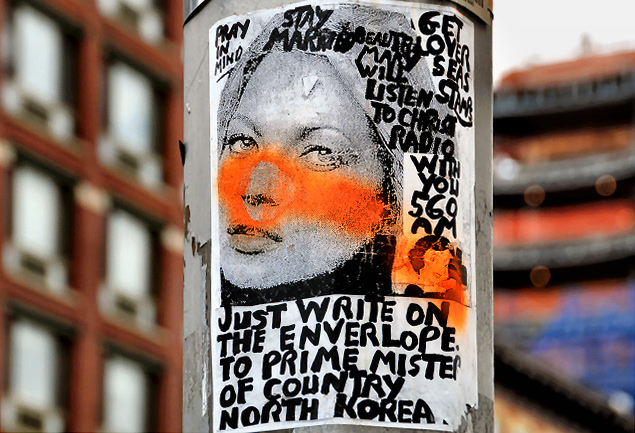 PRAY
IN
MIND
STAY
MARRIED
BEAUTY
MARY
WILL
LISTEN
TO CHRIST
RADIO
WITH
YOU
560
AM
GET
LOVER
SEAS
STAMP
JUST WRITE ON
THE ENVERLOPE.
TO PRIME MISTER
OF COUNTRY
NORTH KOREA.